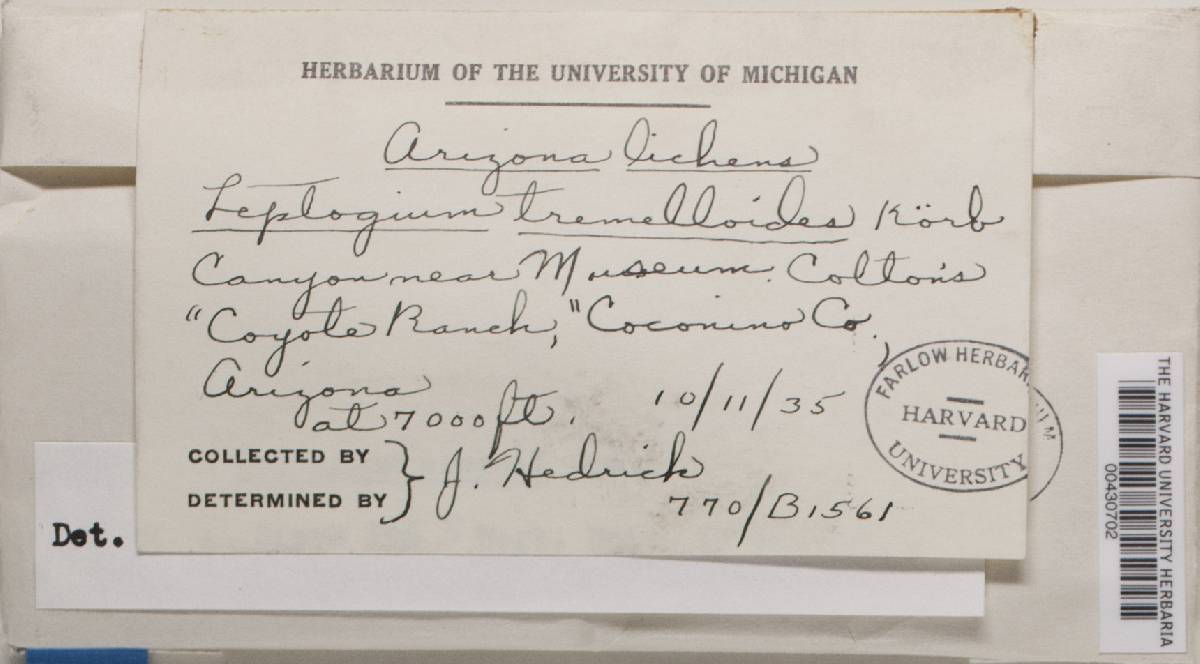 HERBARIUM OF THE UNIVERSITY OF MICHIGAN
Arizona lichens
Leptogium tremelloides Körb
Canyon near Museum. Colton's
"Coyote Ranch," Coconino Co.,
Arizona
at 7000 ft. 10/11/35
COLLECTED BY
DETERMINED BY } J. Hedrick
770/B1561
FARLOW HERBARIUM
HARVARD
UNIVERSITY
Det.
THE HARVARD UNIVERSITY HERBARIA
00430702